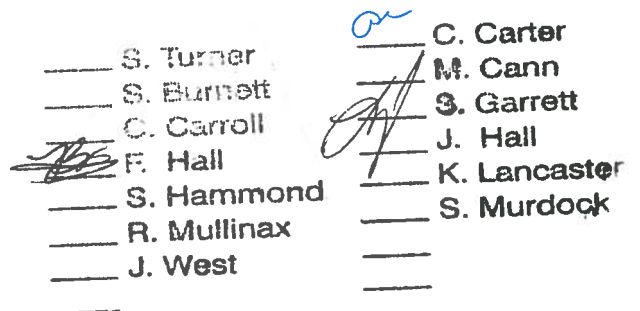 S. Turner
S. Burnett
C. Carroll
F. Hall
S. Hammond
R. Mullinax
J. West
C. Carter
M. Cann
S. Garrett
J. Hall
K. Lancaster
S. Murdock